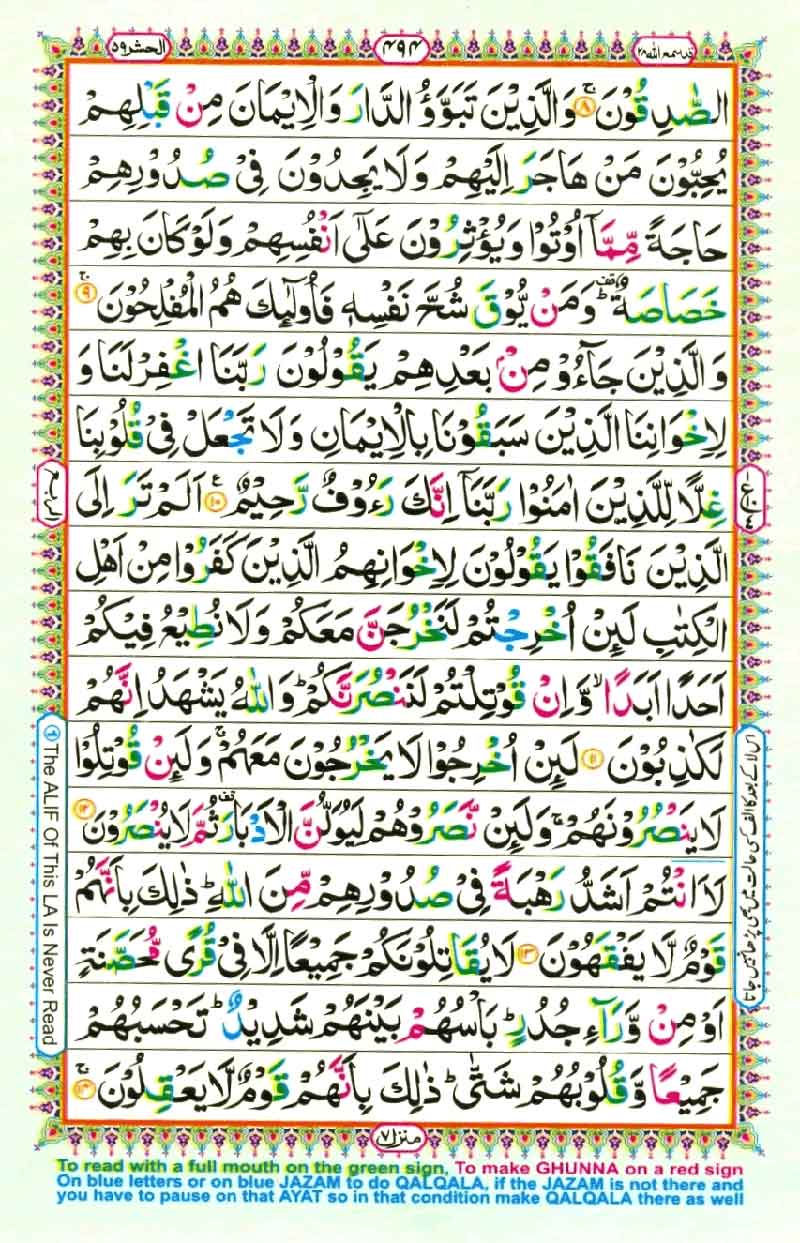 قد سمع الله ٢٨
٤٩٤
الحشر ٥٩
الصّٰدِقُوْنَ ۚ ۸ وَالَّذِیْنَ تَبَوَّؤُ الدَّارَ وَالْاِیْمَانَ مِنْ قَبْلِهِمْ
یُحِبُّوْنَ مَنْ هَاجَرَ اِلَیْهِمْ وَلَا یَجِدُوْنَ فِیْ صُدُوْرِهِمْ
حَاجَةً مِّمَّاۤ اُوْتُوْا وَیُؤْثِرُوْنَ عَلٰۤی اَنْفُسِهِمْ وَلَوْ كَانَ بِهِمْ
خَصَاصَةٌ ؕ وَمَنْ یُّوْقَ شُحَّ نَفْسِهٖ فَاُولٰٓىِٕكَ هُمُ الْمُفْلِحُوْنَ ۚ ۹
وَالَّذِیْنَ جَآءُوْ مِنْۢ بَعْدِهِمْ یَقُوْلُوْنَ رَبَّنَا اغْفِرْ لَنَا وَ
لِاِخْوَانِنَا الَّذِیْنَ سَبَقُوْنَا بِالْاِیْمَانِ وَلَا تَجْعَلْ فِیْ قُلُوْبِنَا
غِلًّا لِّلَّذِیْنَ اٰمَنُوْا رَبَّنَاۤ اِنَّكَ رَءُوْفٌ رَّحِیْمٌ ۱۰ اَلَمْ تَرَ اِلَی
الَّذِیْنَ نَافَقُوْا یَقُوْلُوْنَ لِاِخْوَانِهِمُ الَّذِیْنَ كَفَرُوْا مِنْ اَهْلِ
الْكِتٰبِ لَىِٕنْ اُخْرِجْتُمْ لَنَخْرُجَنَّ مَعَكُمْ وَلَا نُطِیْعُ فِیْكُمْ
اَحَدًا اَبَدًا ۙ وَّاِنْ قُوْتِلْتُمْ لَنَنْصُرَنَّكُمْ ؕ وَاللّٰهُ یَشْهَدُ اِنَّهُمْ
لَكٰذِبُوْنَ ۱۱ لَىِٕنْ اُخْرِجُوْا لَا یَخْرُجُوْنَ مَعَهُمْ ۚ وَلَىِٕنْ قُوْتِلُوْا
لَا یَنْصُرُوْنَهُمْ ۚ وَلَىِٕنْ نَّصَرُوْهُمْ لَیُوَلُّنَّ الْاَدْبَارَ ۫ ثُمَّ لَا یُنْصَرُوْنَ ۱۲
لَاَانْتُمْ اَشَدُّ رَهْبَةً فِیْ صُدُوْرِهِمْ مِّنَ اللّٰهِ ؕ ذٰلِكَ بِاَنَّهُمْ
قَوْمٌ لَّا یَفْقَهُوْنَ ۱۳ لَا یُقَاتِلُوْنَكُمْ جَمِیْعًا اِلَّا فِیْ قُرًی مُّحَصَّنَةٍ
اَوْ مِنْ وَّرَآءِ جُدُرٍ ؕ بَاْسُهُمْ بَیْنَهُمْ شَدِیْدٌ ؕ تَحْسَبُهُمْ
جَمِیْعًا وَّقُلُوْبُهُمْ شَتّٰی ؕ ذٰلِكَ بِاَنَّهُمْ قَوْمٌ لَّا یَعْقِلُوْنَ ۚ ۱۴
الربع
① The ALIF Of This LA Is Never Read
منزل ۷
To read with a full mouth on the green sign, To make GHUNNA on a red sign
On blue letters or on blue JAZAM to do QALQALA, if the JAZAM is not there and
you have to pause on that AYAT so in that condition make QALQALA there as well